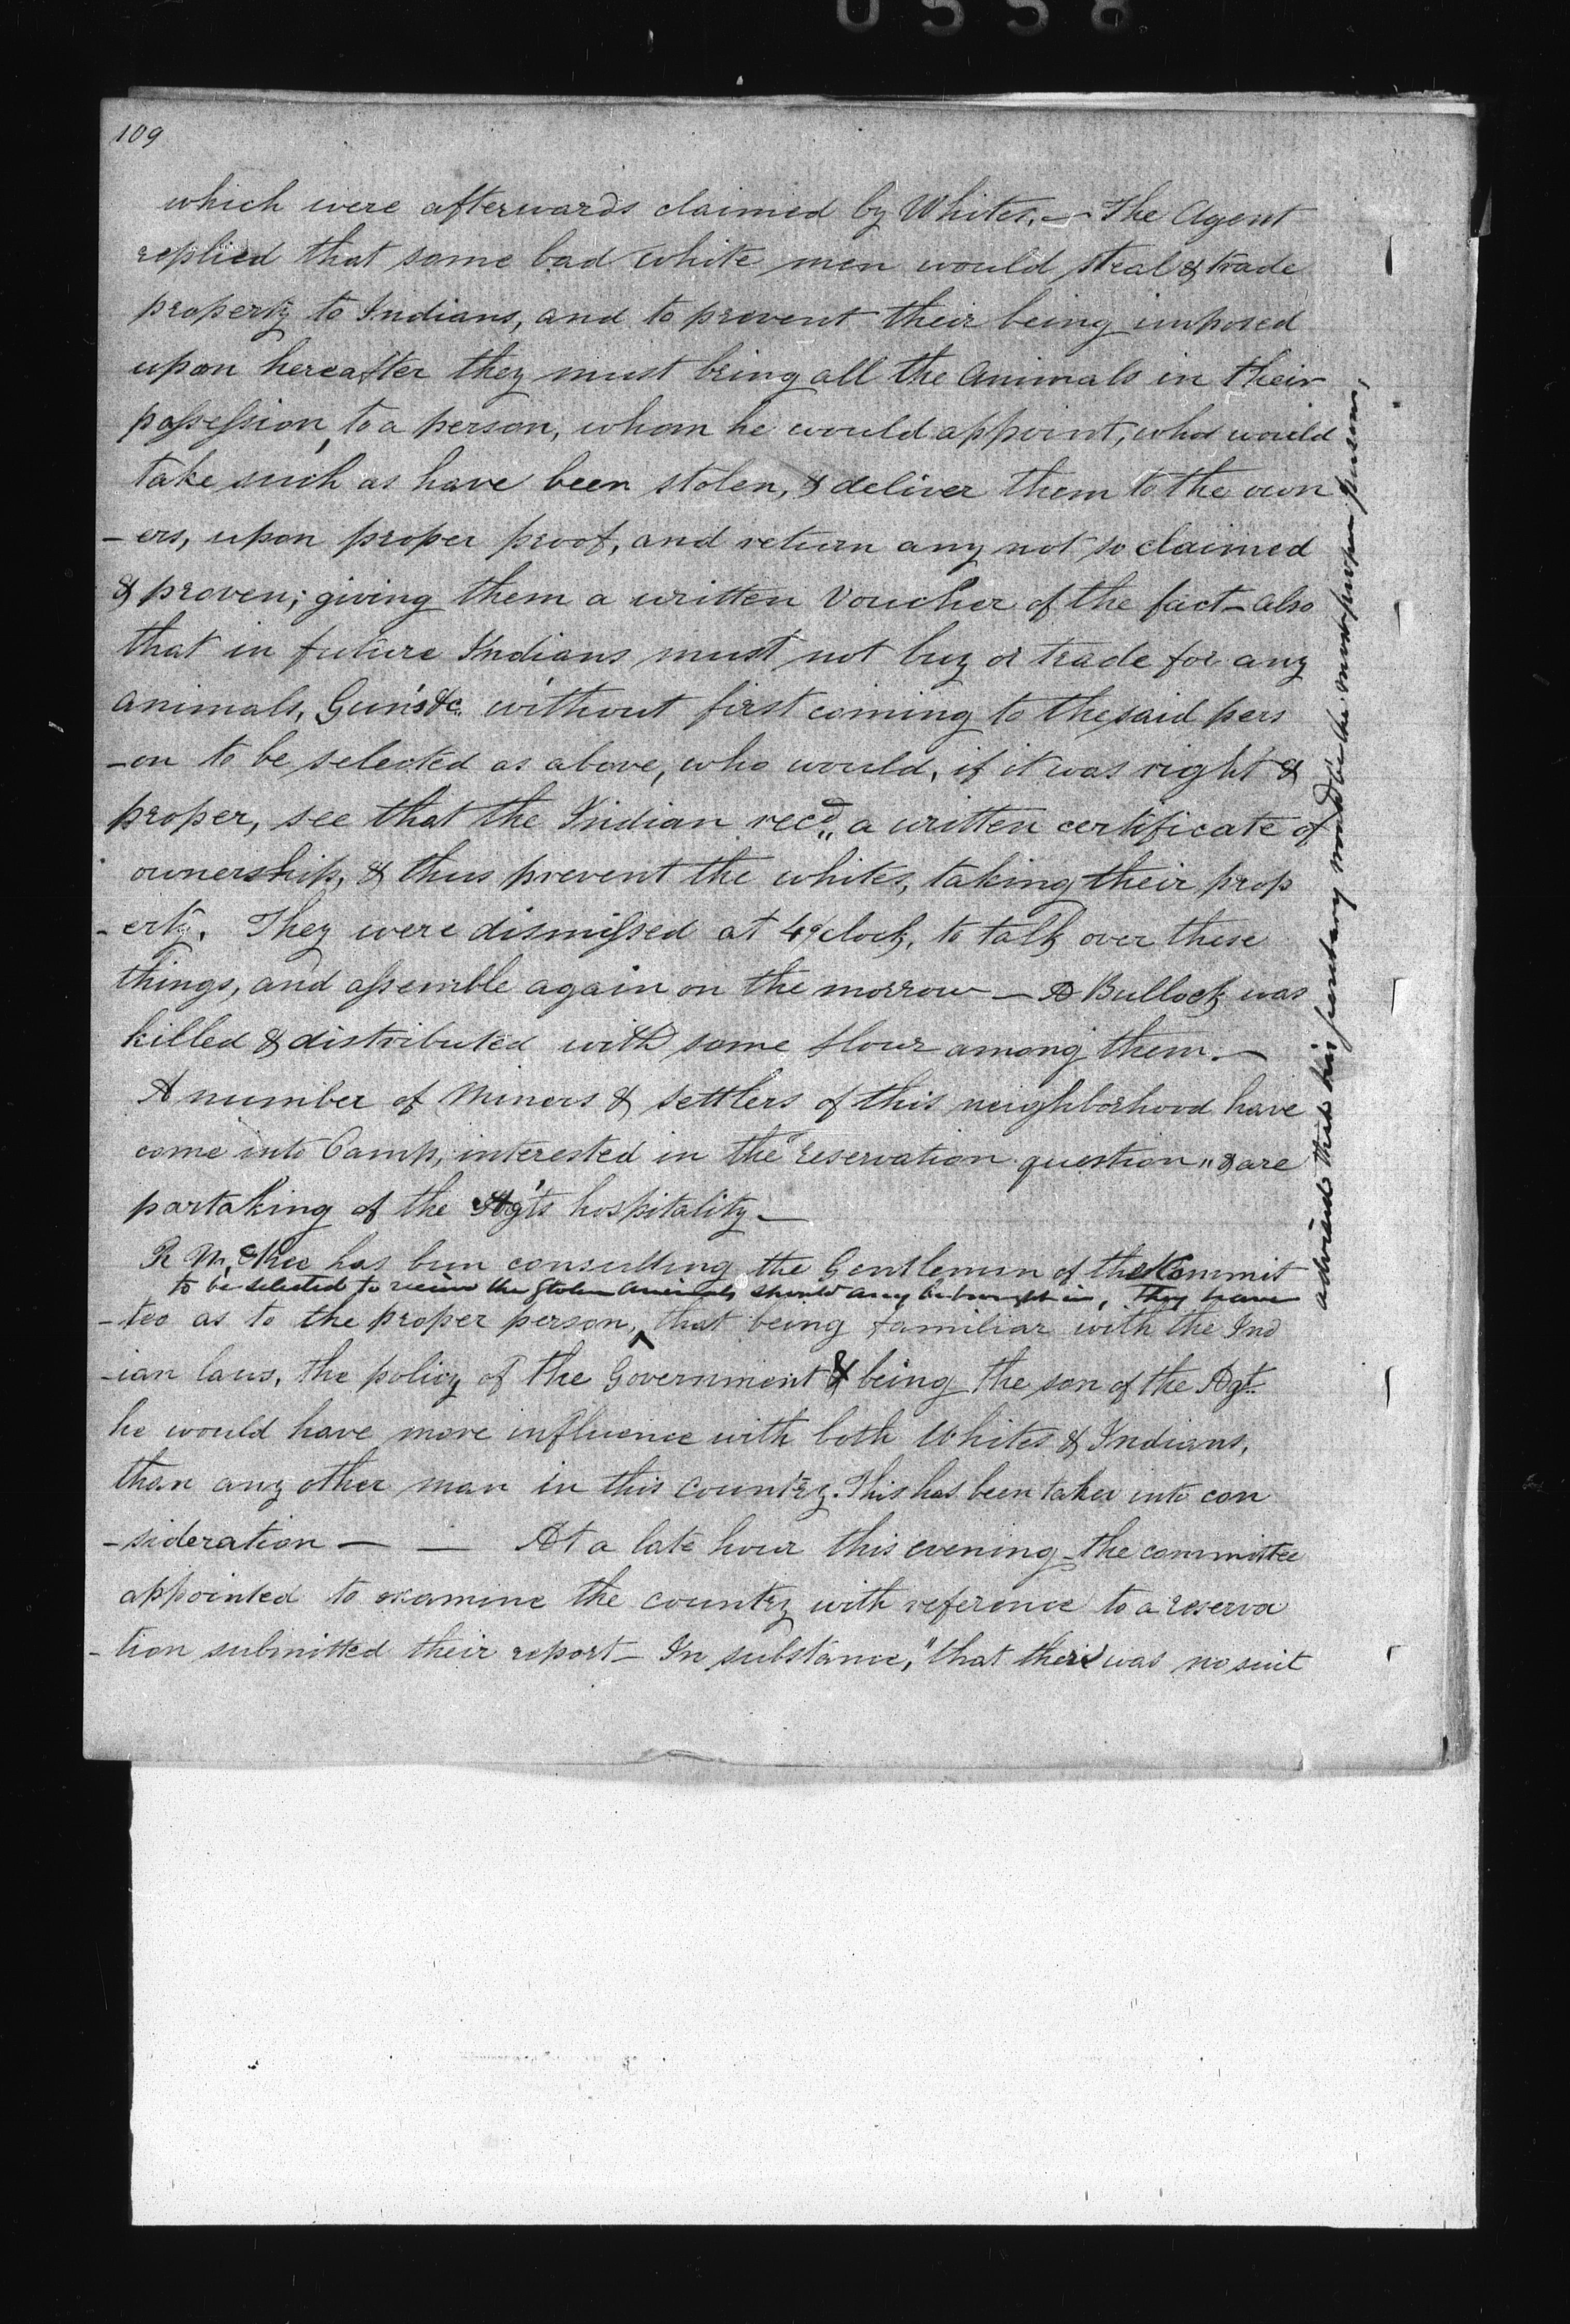 0558
109
which were afterwards claimed by Whites. — The Agent
replied that some bad white men would steal & trade
property to Indians, and to prevent their being imposed
upon hereafter they must bring all the Animals in their
possession, to a person, whom he would appoint, who would
take such as have been stolen, & deliver them to the own
- ers, upon proper proof, and return any not so claimed
& proven; giving them a written Voucher of the fact - also
that in future Indians must not buy or trade for any
animals, Gun's &c. without first coming to the said pers
- on to be selected as above, who would, if it was right &
proper, see that the Indian recd a written certificate of
ownership, & thus prevent the whites, taking their prop
- erty. They were dismissed at 4 o'clock, to talk over these
things, and assemble again on the morrow — A Bullock was
killed & distributed with some flour among them. —
A number of Miners & settlers of this neighborhood have
come into Camp, interested in the "reservation question" & are
partaking of the Agt's hospitality. —
R McKee has been consulting the Gentlemen of the Commit
to be selected to receive the stolen animals should any be brought in, They have
- tee as to the proper person, ^ that being familiar with the Ind
- ian laws, the policy of the Government & being the son of the Agt.
he would have more influence with both Whites & Indians,
than any other man in this country. This has been taken into con
- sideration — — At a late hour this evening the committee
appointed to examine the country with reference to a reserva
- tion submitted their report - In substance, "that there was no suit
advised that his secretary would be the most proper person,